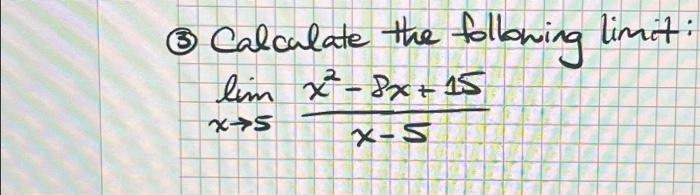 ③ Calculate the following limit:
lim x² - 8x + 15
x→5 x-5